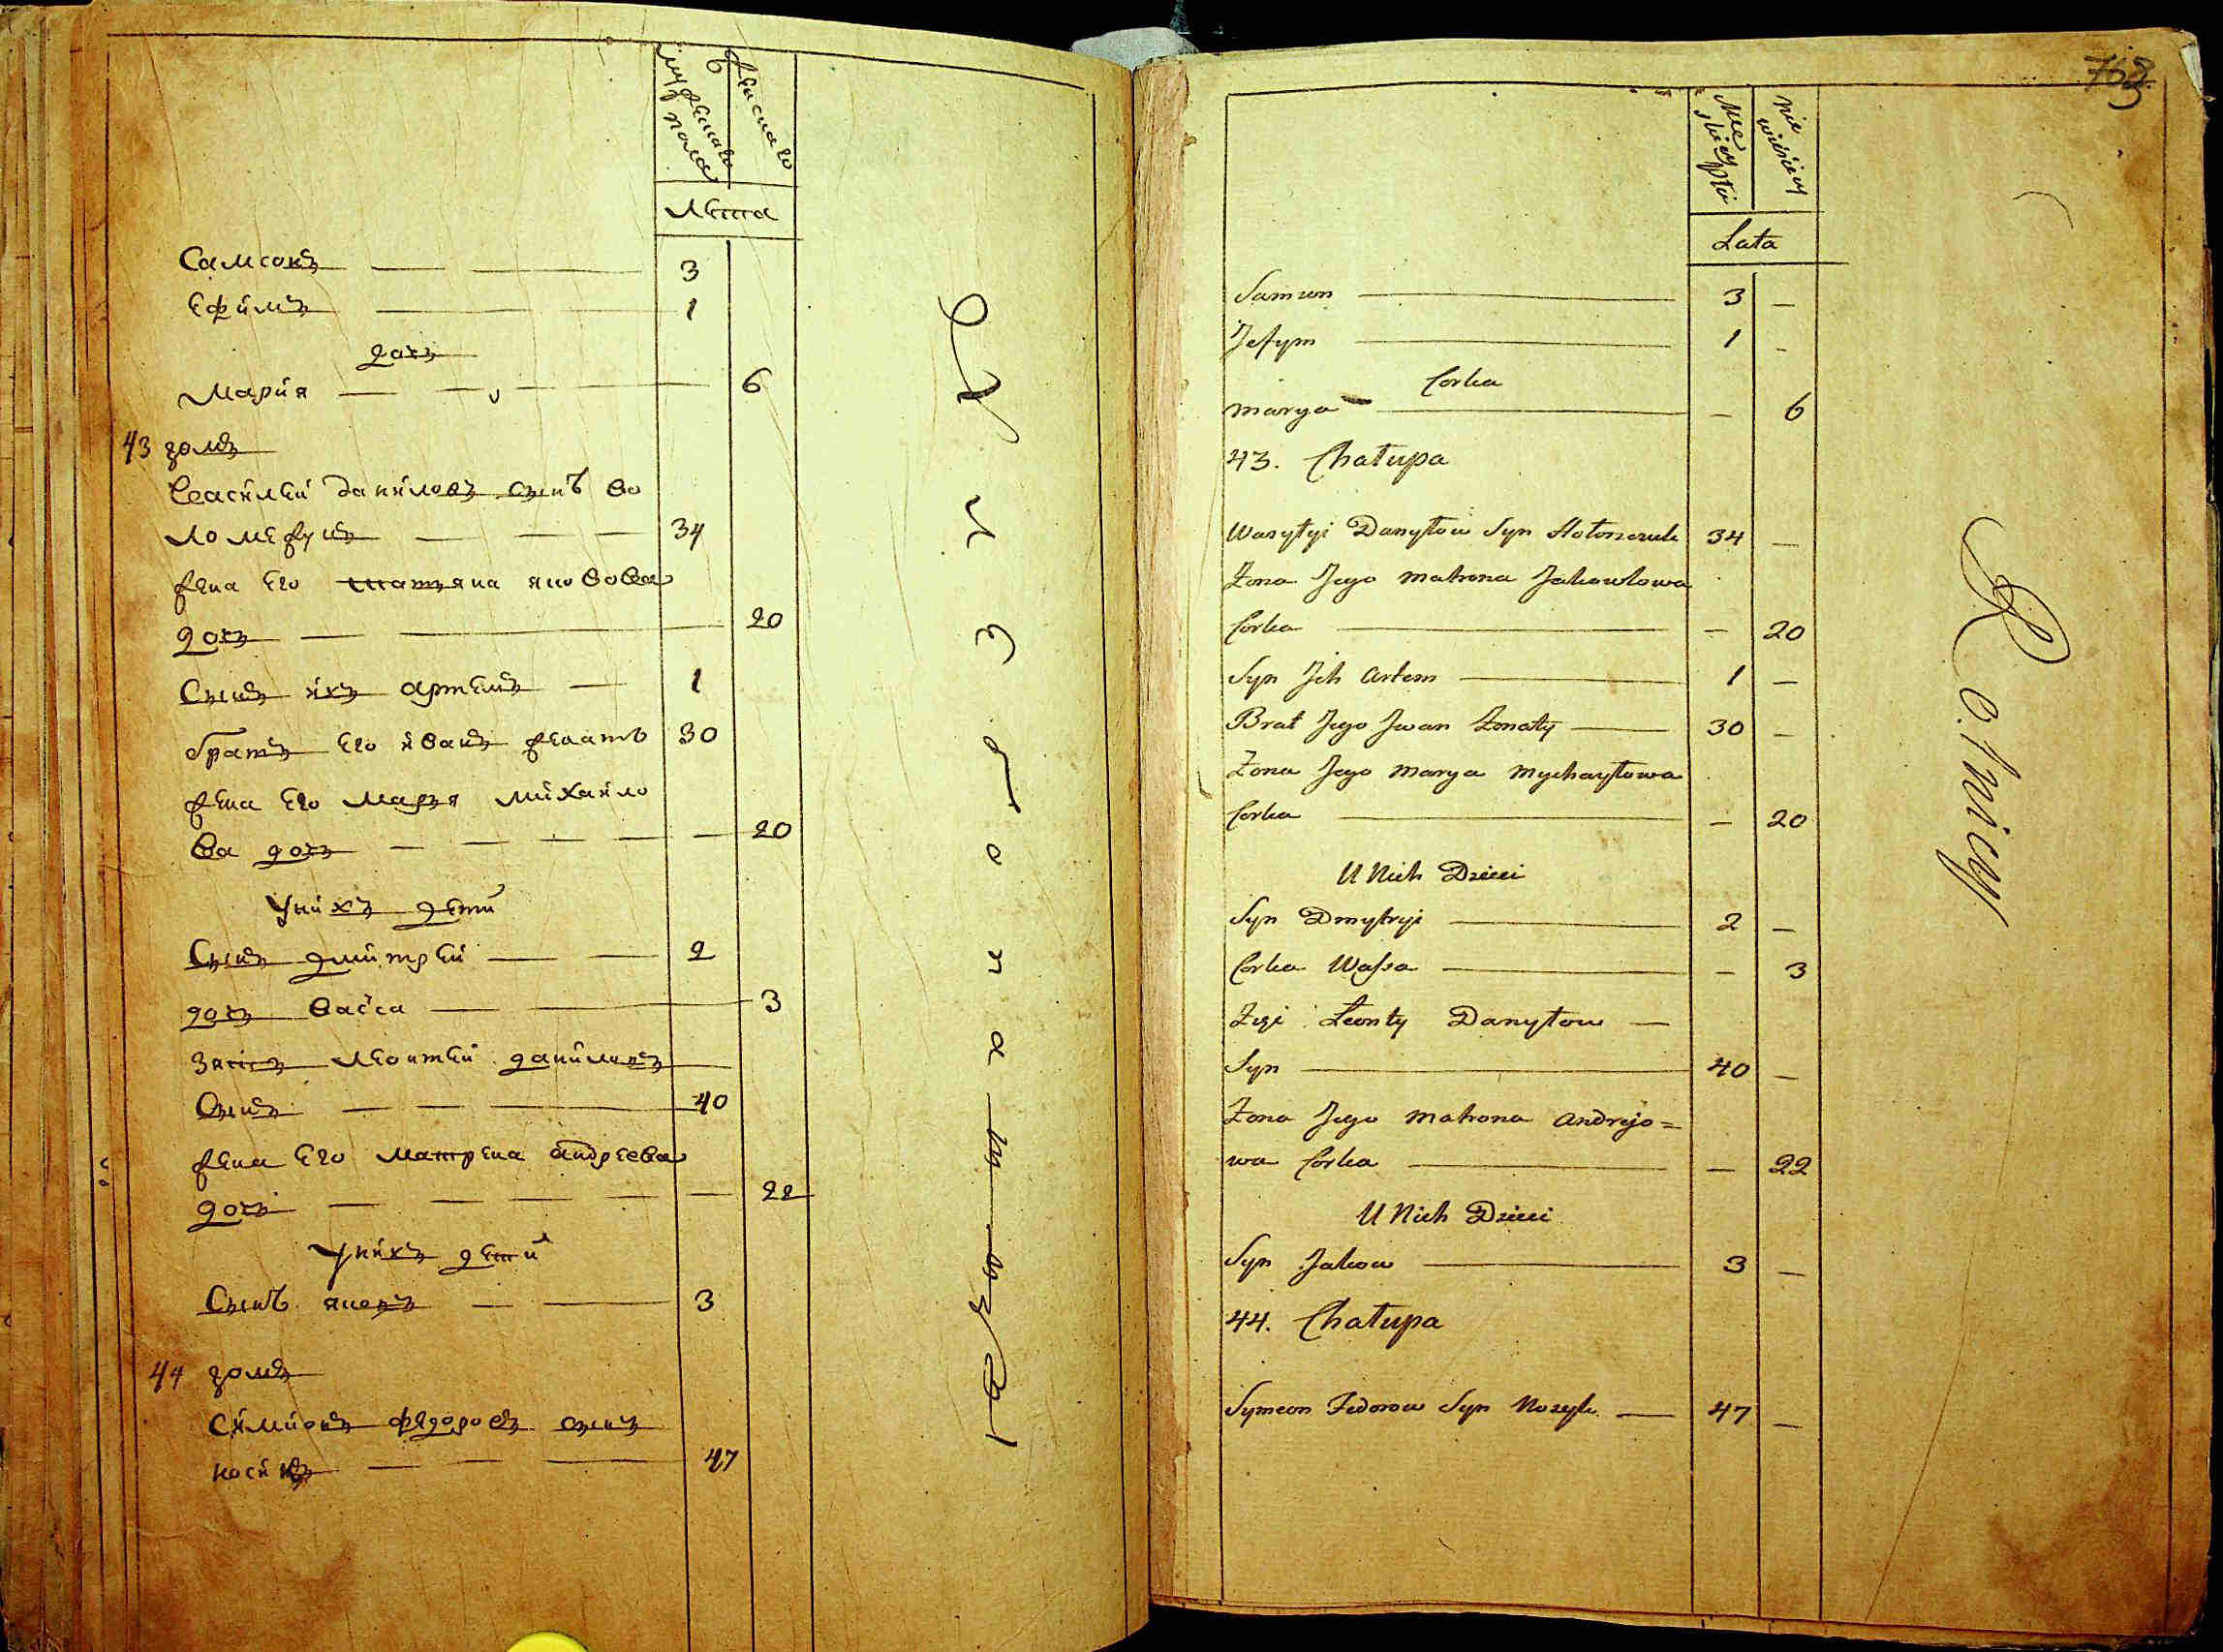 мужеска пола
женскаго
Лета
Самсонъ 3
Ефимъ 1
дочь
Мария 6
43 домъ
Василей Даниловъ сынъ Го
ломезукъ 34
жена его Татьяна Яковлева
дочь 20
Сынъ ихъ Артемъ 1
братъ его Иванъ женатъ 30
жена его Марья Михайло
ва дочь 20
У нихъ дети
Сынъ Дмитрей 2
дочь Васса 3
зять Леонтей Даниловъ
Сынъ 40
жена его Матрена Андреева
дочь 22
У нихъ дети
Сынъ Яковъ 3
44 домъ
Симионъ Федоровъ сынъ
47
763
Męskiey płci
Niewieściey
Lata
Samson 3 —
Jefym 1 -
Corka
Marya — 6
43. Chałupa
Wasylyi Danyłow Syn 34 —
Żona Jego Matrona Jakowlowa
Corka — 20
Syn Jch Artem 1 —
Brat Jego Jwan Żonaty 30 —
Żona Jego Marya Mychayłowa
Corka — 20
U Nich Dzieci
Syn Dmytryi 2 —
Corka Wassa — 3
Zięć Leonty Danyłow —
Syn 40 —
Żona Jego Matrona Andrejo=
wa Corka — 22
U Nich Dzieci
Syn Jakow 3 —
44. Chałupa
Symeon Fedorow Syn Nosyk 47 —
Rolnicy